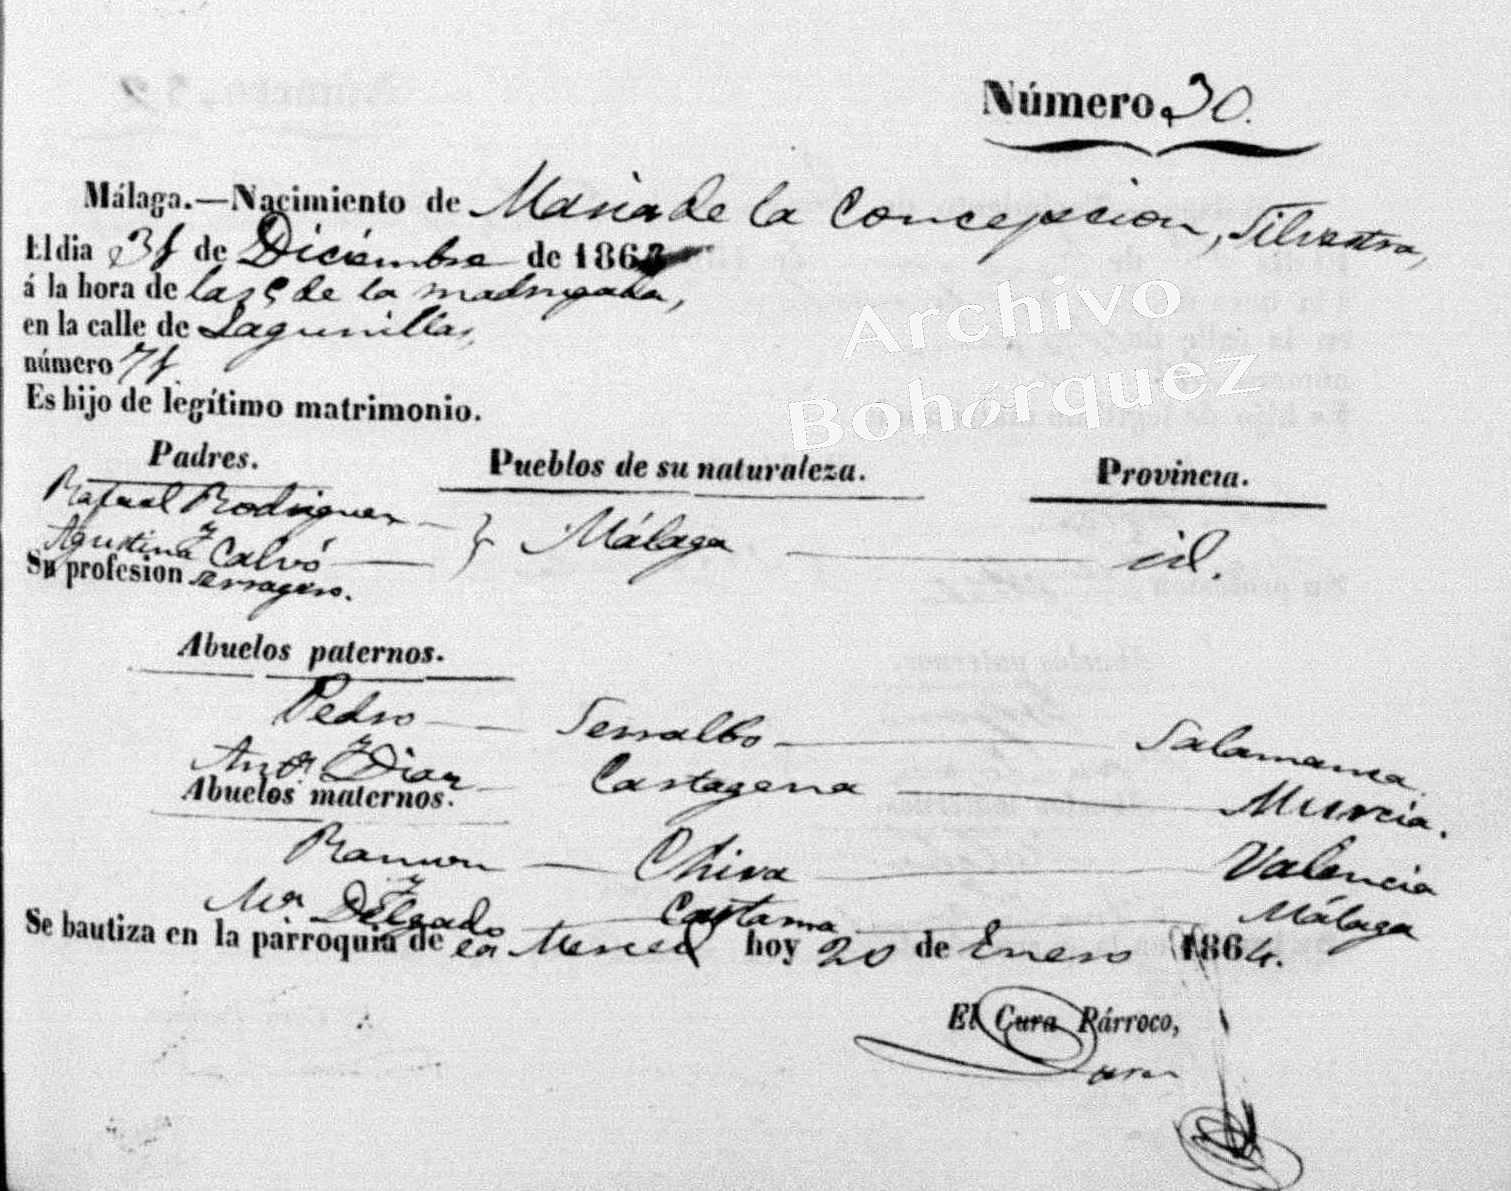 Número 30.
Málaga.—Nacimiento de Maria de la Concepcion, Silvestra,
El dia 31 de Diciembre de 1863
á la hora de las 5 de la madrugada,
en la calle de Lagunillas,
número 71
Es hijo de legítimo matrimonio.
Padres. Pueblos de su naturaleza. Provincia.
Rafael Rodriguez
Agustina Calvo } Málaga id.
Su profesion serragero.
Abuelos paternos.
Pedro Serralbo Salamanca.
Anta. Diaz Cartagena Murcia.
Abuelos maternos.
Ramon Chiva Valencia
Ma. Delgado Cartama Málaga
Se bautiza en la parroquia de la Merced hoy 20 de Enero 1864.
El Cura Párroco,
Archivo
Bohórquez